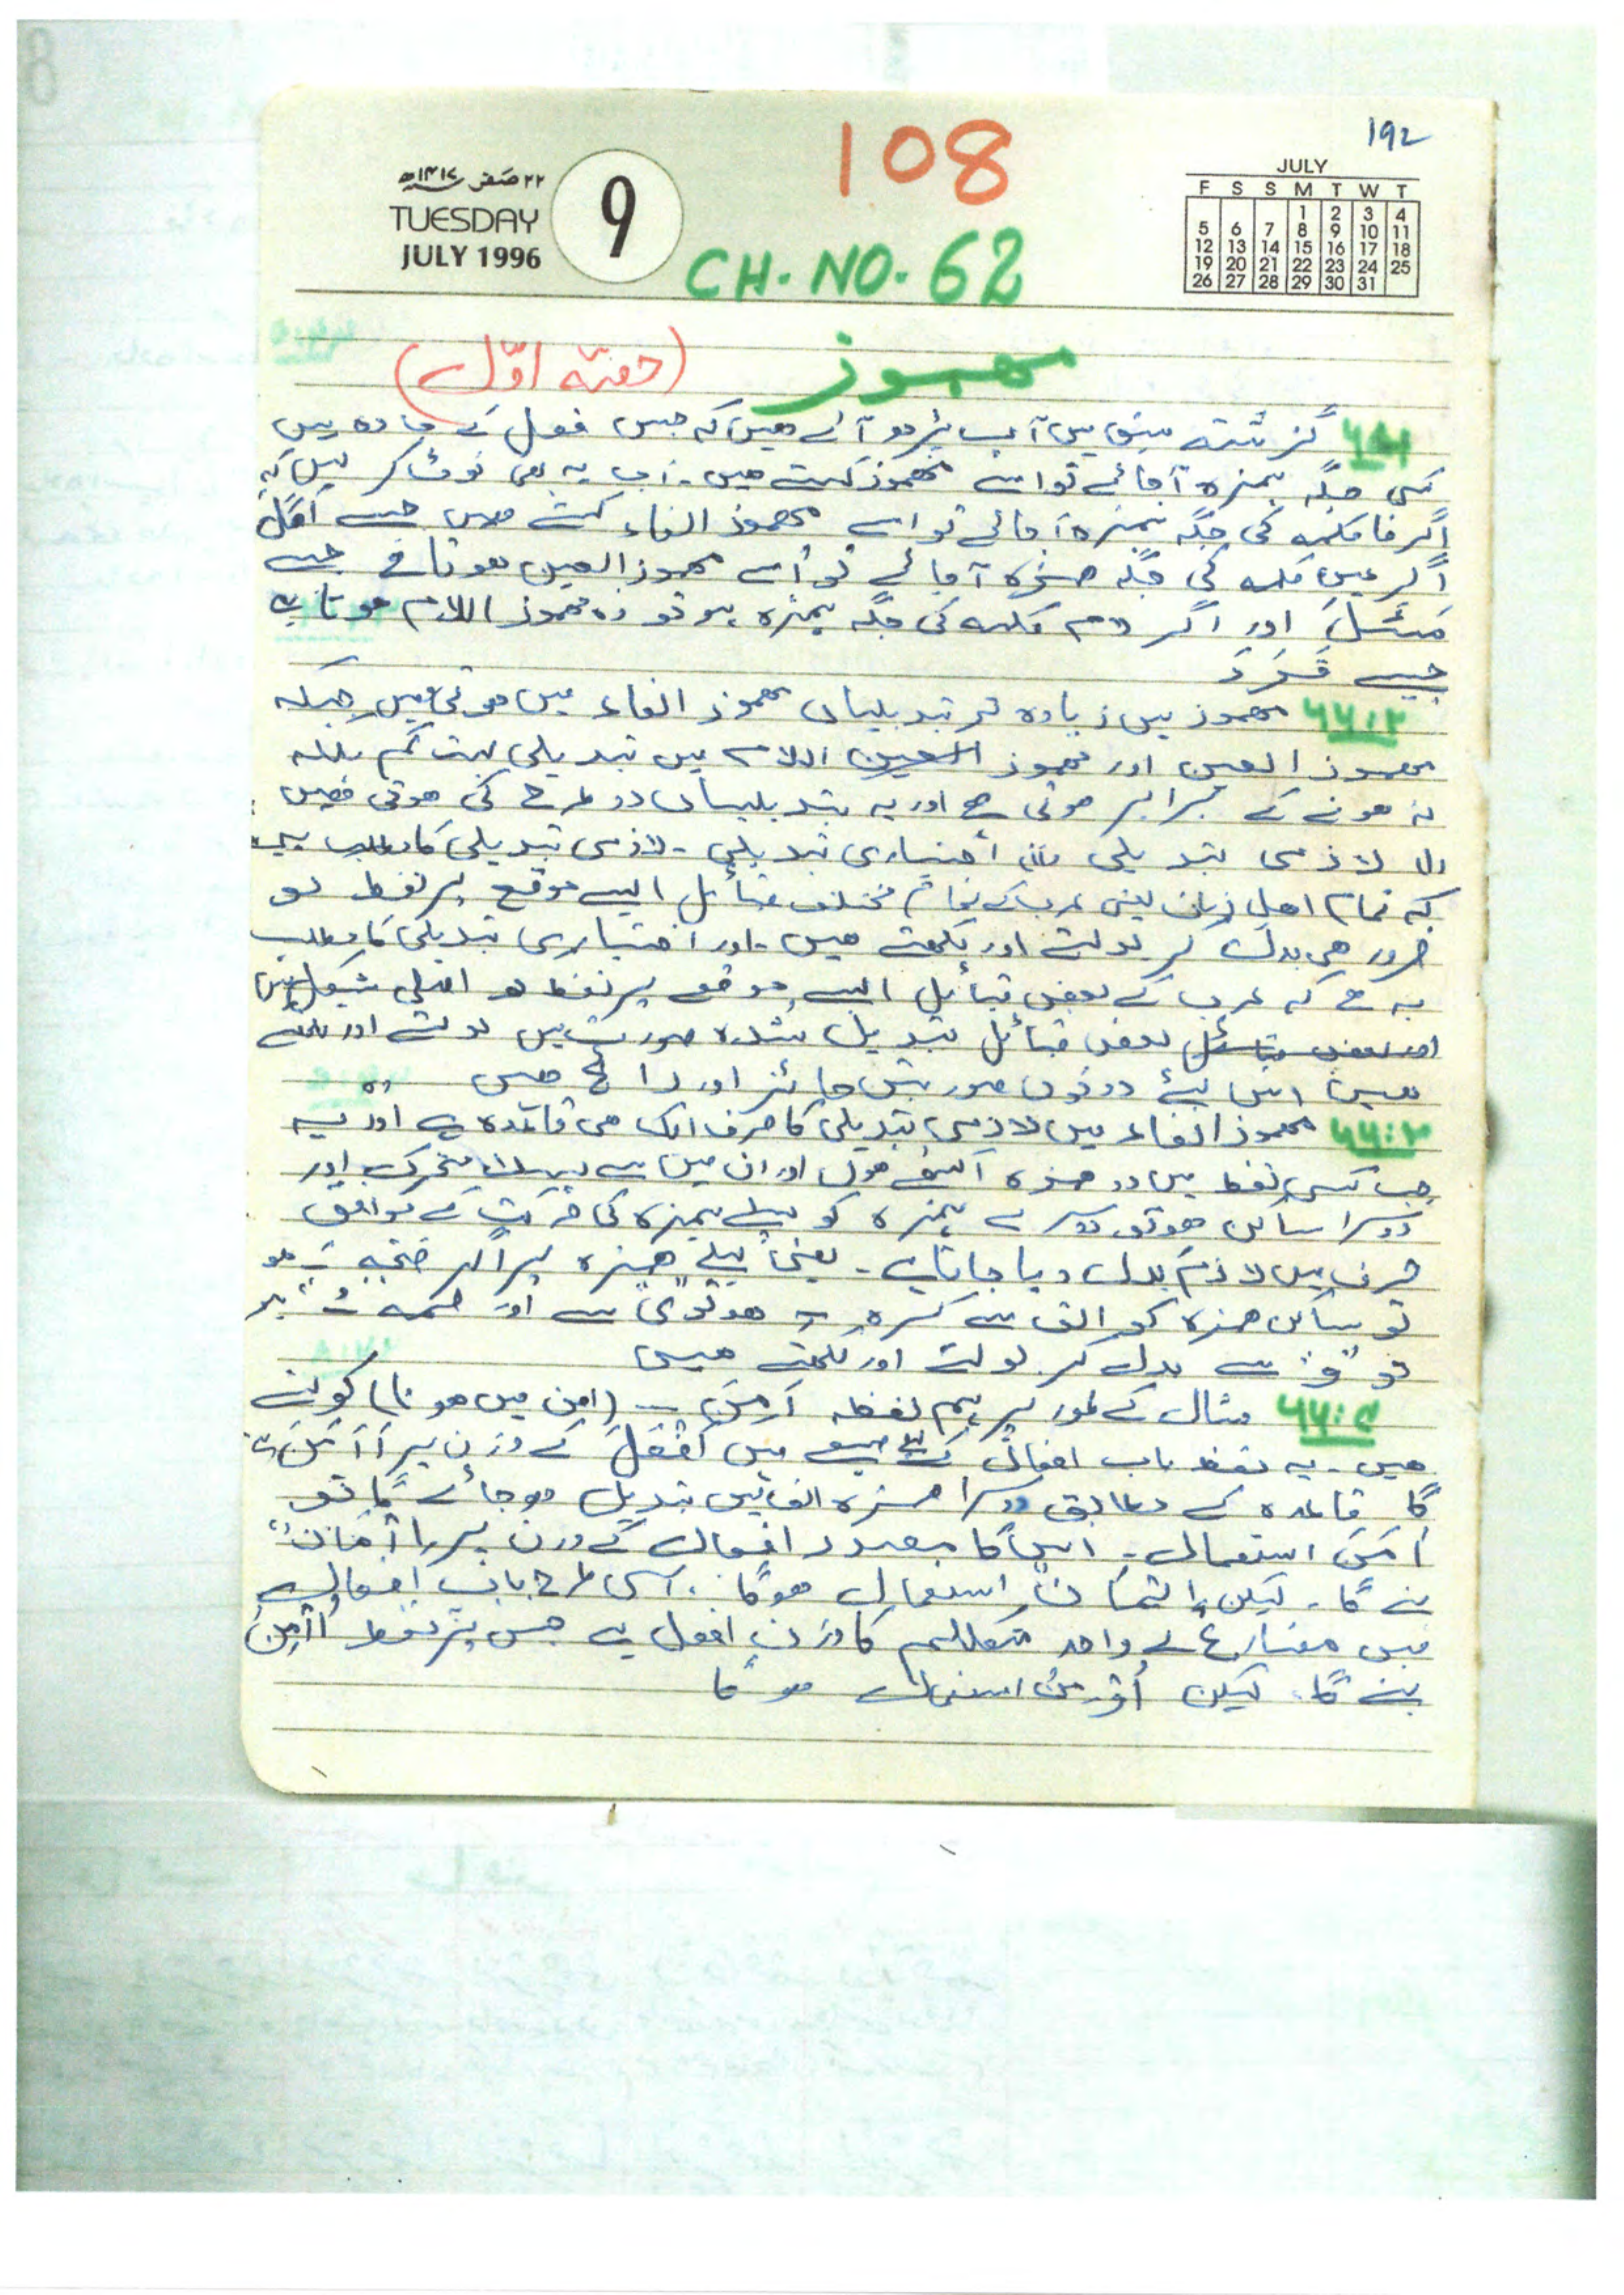 192
108
۲۲ صفر ۱۴۱۷ھ
TUESDAY
JULY 1996
9
CH. NO. 62
JULY
F S S M T W T
1 2 3 4
5 6 7 8 9 10 11
12 13 14 15 16 17 18
19 20 21 22 23 24 25
26 27 28 29 30 31
مہموز (حصّہ اوّل)
گزشتہ سبق میں آپ پڑھ آئے ہیں کہ جس فعل کے مادہ میں
کسی جگہ ہمزہ آجائے تو اسے مہموز کہتے ہیں۔ اب یہ بھی نوٹ کر لیں کہ
اگر فا کلمہ کی جگہ ہمزہ آجائے تو اسے مہموز الفاء کہتے ہیں جیسے اَکَلَ
اگر عین کلمہ کی جگہ ہمزہ آجائے تو اُسے مہموز العین ہوتا ہے جیسے
سَئَلَ اور اگر لام کلمہ کی جگہ ہمزہ ہو تو وہ مہموز اللام ہوتا ہے
جیسے قَرَءَ
۶۲:۲ مہموز میں زیادہ تر تبدیلیاں مہموز الفاء میں ہوتی ہیں جبکہ
مہموز العین اور مہموز اللام میں تبدیلی بہت کم بلکہ
نہ ہونے کے برابر ہوتی ہے اور یہ تبدیلیاں دو طرح کی ہوتی ہیں
(۱) لازمی تبدیلی (۲) اختیاری تبدیلی۔ لازمی تبدیلی کا مطلب ہے
کہ تمام اھل زبان یعنی عرب کے تمام مختلف قبائل ایسے موقع پر لفظ کو
ضرور ھی بدل کر بولتے اور لکھتے ھیں۔ اور اختیاری تبدیلی کا مطلب
یہ ھے کہ عرب کے بعض قبائل ایسے موقع پر لفظ کو اصلی شکل میں
اور بعض قبائل تبدیل شدہ صورت میں بولتے اور لکھتے
ھیں اس لیے دونوں صورتیں جائز اور رائج ھیں
۶۲:۳ مہموز الفاء میں لازمی تبدیلی کا صرف ایک ھی قاعدہ ہے اور یہ
جب کسی لفظ میں دو ھمزہ اکٹھے ھوں اور ان میں سے پہلا متحرک اور
دوسرا ساکن ھو تو دوسرے ہمزہ کو پہلے ہمزہ کی حرکت کے موافق
حرف میں لازم بدل دیا جاتا ہے۔ یعنی پہلے ھمزہ پر اگر فتحہ َ ھو
تو ساکن ھمزہ کو الف سے کسرہ ِ ھو تو ی سے اور ضمہ ُ پر
تو "و" سے بدل کر بولتے اور لکھتے ھیں
۶۲:۴ مثال کے طور پر ہم لفظ اَمِنَ (امن میں ھونا) کو لیتے
ھیں۔ یہ لفظ باب افعال کے صیغے میں اَفْعَلَ کے وزن پر اَأْمَنَ
گا قاعدہ کے مطابق دوسرا ھمزہ الف میں تبدیل ھوجائے گا تو
اٰمَنَ استعمال۔ اس کا مصدر افعال کے وزن پر اِأْمَانٌ
بنے گا۔ لیکن اِیْمَانٌ استعمال ھوگا۔ اسی طرح باب افعال
میں مضارع کے واحد متکلم کا وزن افعل ہے جس پر لفظ اُأْمِنُ
بنے گا۔ لیکن اُوْمِنُ استعمال ھوگا